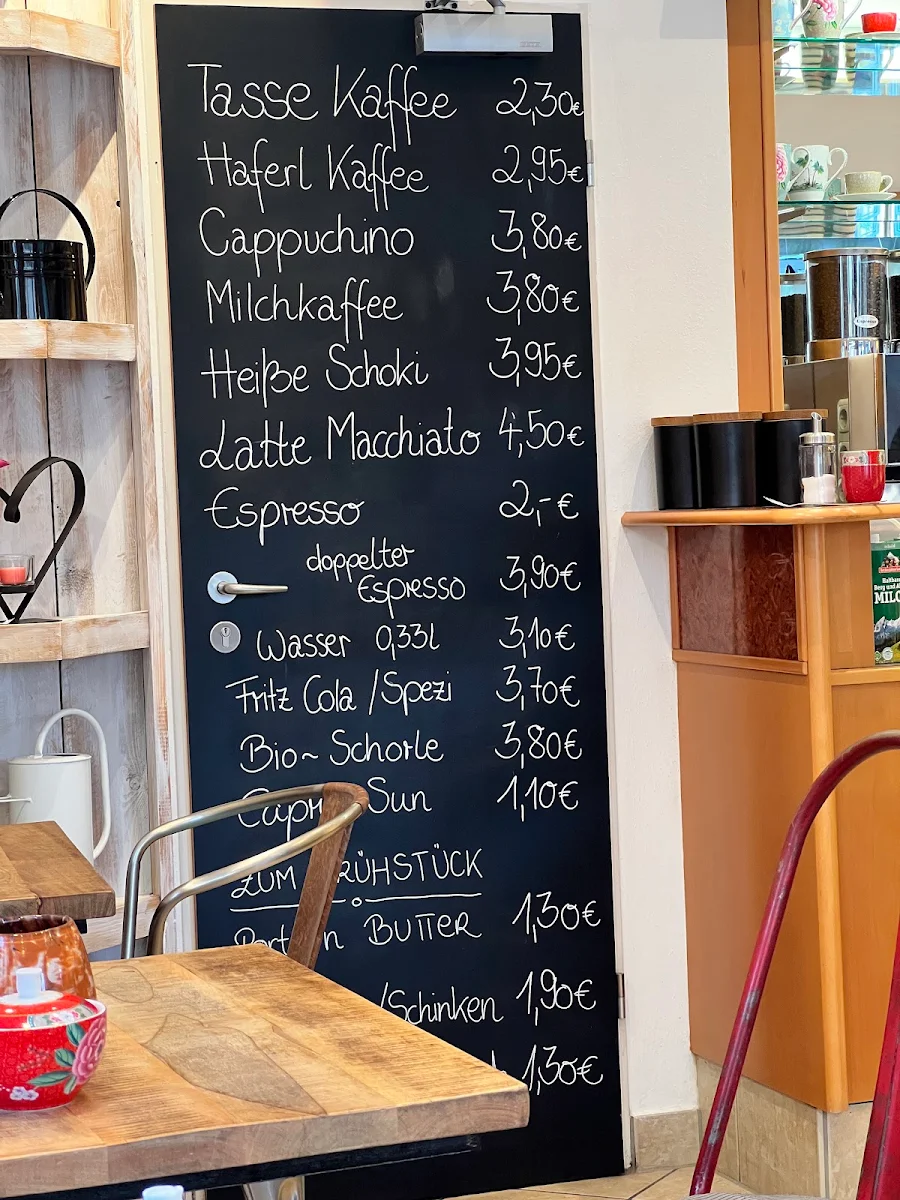 Tasse Kaffee 2,30€
Haferl Kaffee 2,95€
Cappuchino 3,80€
Milchkaffee 3,80€
Heiße Schoki 3,95€
Latte Macchiato 4,50€
Espresso 2,- €
doppelter
Espresso 3,90€
Wasser 0,33l 3,10€
Fritz Cola /Spezi 3,70€
Bio~Schorle 3,80€
Capri Sun 1,10€
ZUM FRÜHSTÜCK
BUTTER 1,30€
/Schinken 1,90€
1,30€
Espresso
MILC